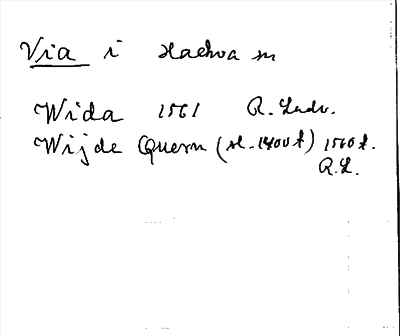 Via i Hackva sn
Wida 1561 R. Ludv.
Wijde Quern (sl. 1400 t) 1560 t.
R.L.